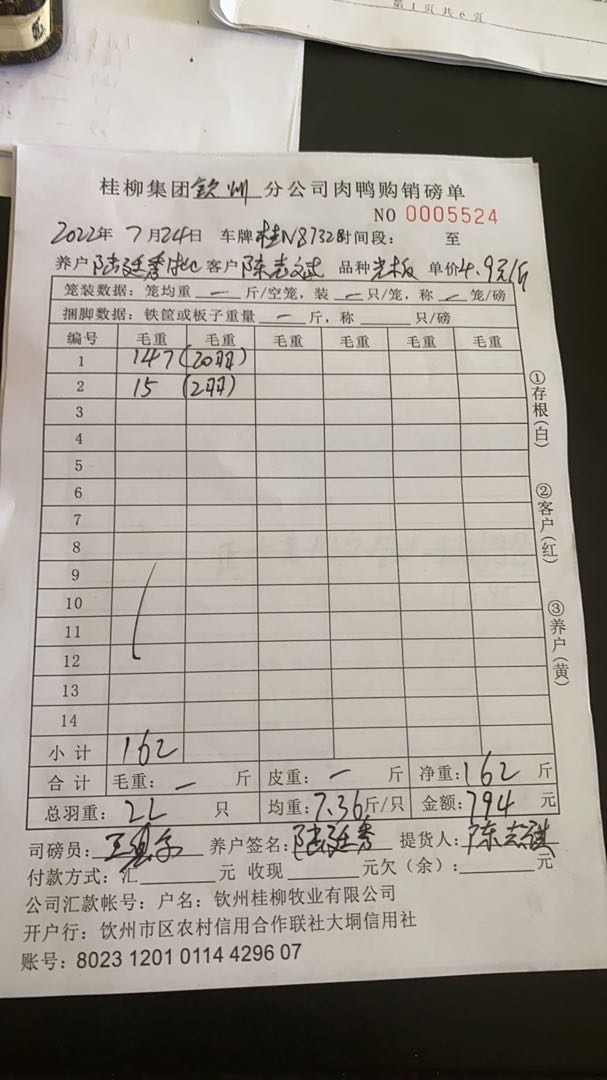 第1页共6页
桂柳集团钦州分公司肉鸭购销磅单
NO 0005524
2022年7月24日 车牌桂N87328时间段: 至
养户陆廷秀 客户陈志斌 品种光板 单价4.9元/斤
笼装数据:笼均重 一 斤/空笼,装 一 只/笼,称 一 笼/磅
捆脚数据:铁筐或板子重量 一 斤,称 只/磅
编号 毛重 毛重 毛重 毛重 毛重 毛重
1 147 (20羽)
2 15 (2羽)
3
4
5
6
7
8
9
10
11
12
13
14
小计 162
合计 毛重: 一 斤 皮重: 一 斤 净重:162斤
总羽重:22 只 均重:7.36斤/只 金额:794元
司磅员: 养户签名:陆廷秀 提货人:陈志斌
付款方式:汇 元 收现 元欠(余): 元
公司汇款帐号:户名:钦州桂柳牧业有限公司
开户行:钦州市区农村信用合作联社大垌信用社
账号:8023 1201 0114 4296 07
①存根(白)
②客户(红)
③养户(黄)